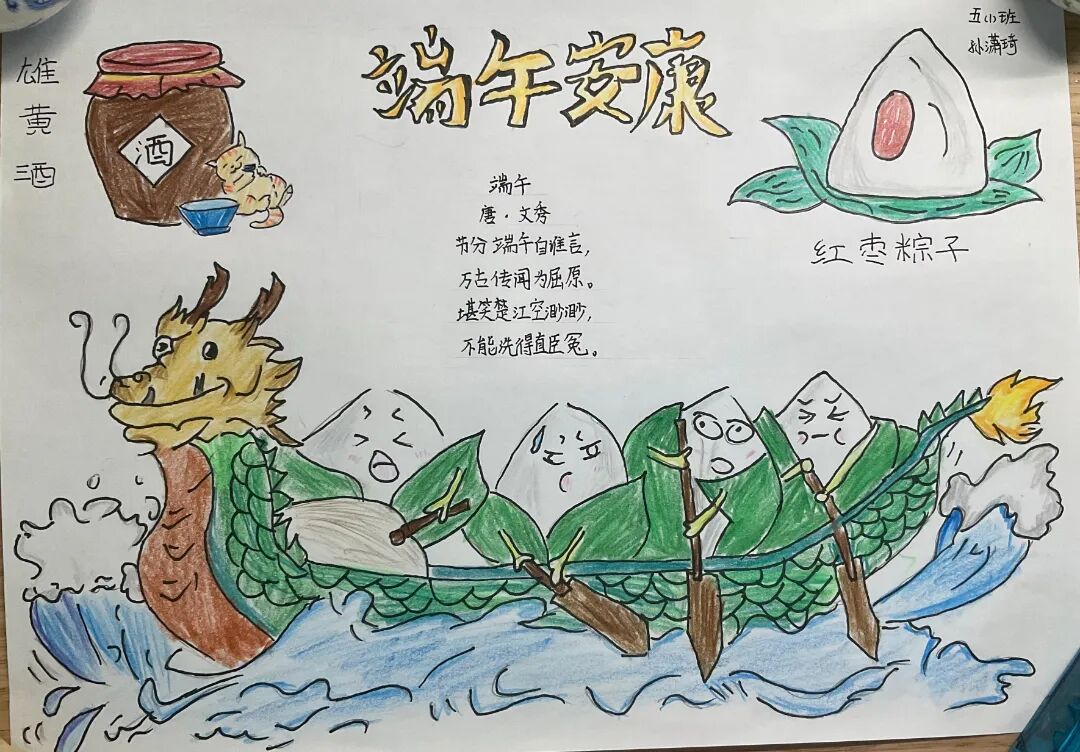 端午安康
五(1)班
孙潇琦
雄黄酒
酒
端午
唐·文秀
节分端午自谁言,
万古传闻为屈原。
堪笑楚江空渺渺,
不能洗得直臣冤。
红枣粽子